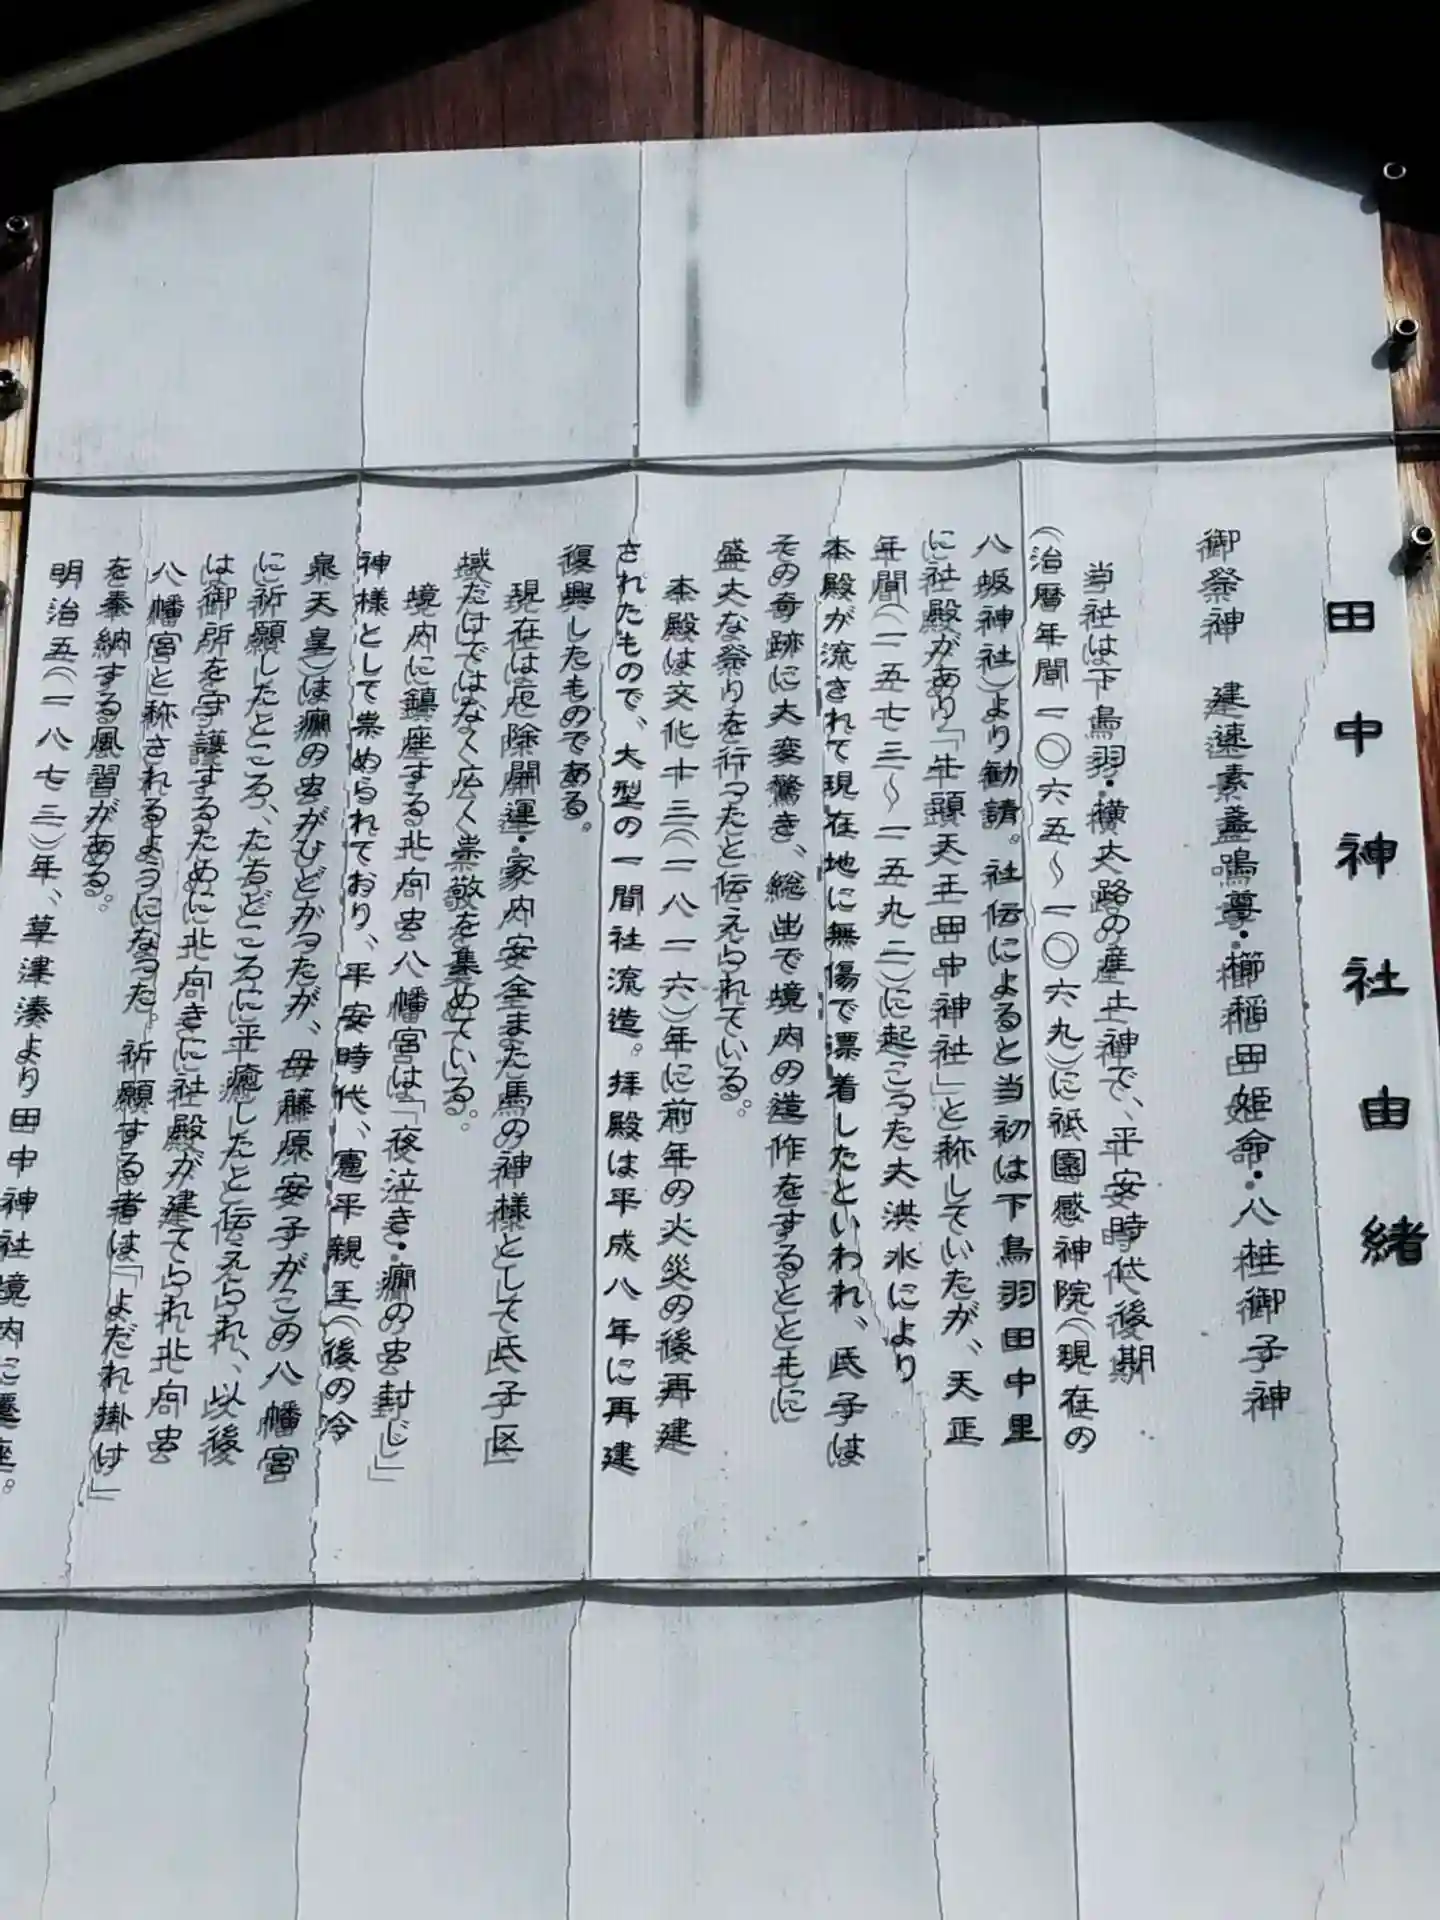 田中神社由緒
御祭神　建速素盞鳴尊・櫛稲田姫命・八柱御子神
当社は下鳥羽・横大路の産土神で、平安時代後期
(治暦年間一〇六五～一〇六九)に祇園感神院(現在の
八坂神社)より勧請。社伝によると当初は下鳥羽田中里
に社殿があり「牛頭天王田中神社」と称していたが、天正
年間(一五七三～一五九二)に起こった大洪水により
本殿が流されて現在地に無傷で漂着したといわれ、氏子は
その奇跡に大変驚き、総出で境内の造作をするとともに
盛大な祭りを行ったと伝えられている。
本殿は文化十三(一八一六)年に前年の火災の後再建
されたもので、大型の一間社流造。拝殿は平成八年に再建
復興したものである。
現在は厄除開運・家内安全また馬の神様として氏子区
域だけではなく広く崇敬を集めている。
境内に鎮座する北向虫八幡宮は「夜泣き・癇の虫封じ」
神様として崇められており、平安時代、憲平親王(後の冷
泉天皇)は癇の虫がひどかったが、母藤原安子がこの八幡宮
に祈願したところ、たちどころに平癒したと伝えられ、以後
は御所を守護するために北向きに社殿が建てられ北向虫
八幡宮と称されるようになった。祈願する者は「よだれ掛け」
を奉納する風習がある。
明治五(一八七三)年、草津湊より田中神社境内に遷座。